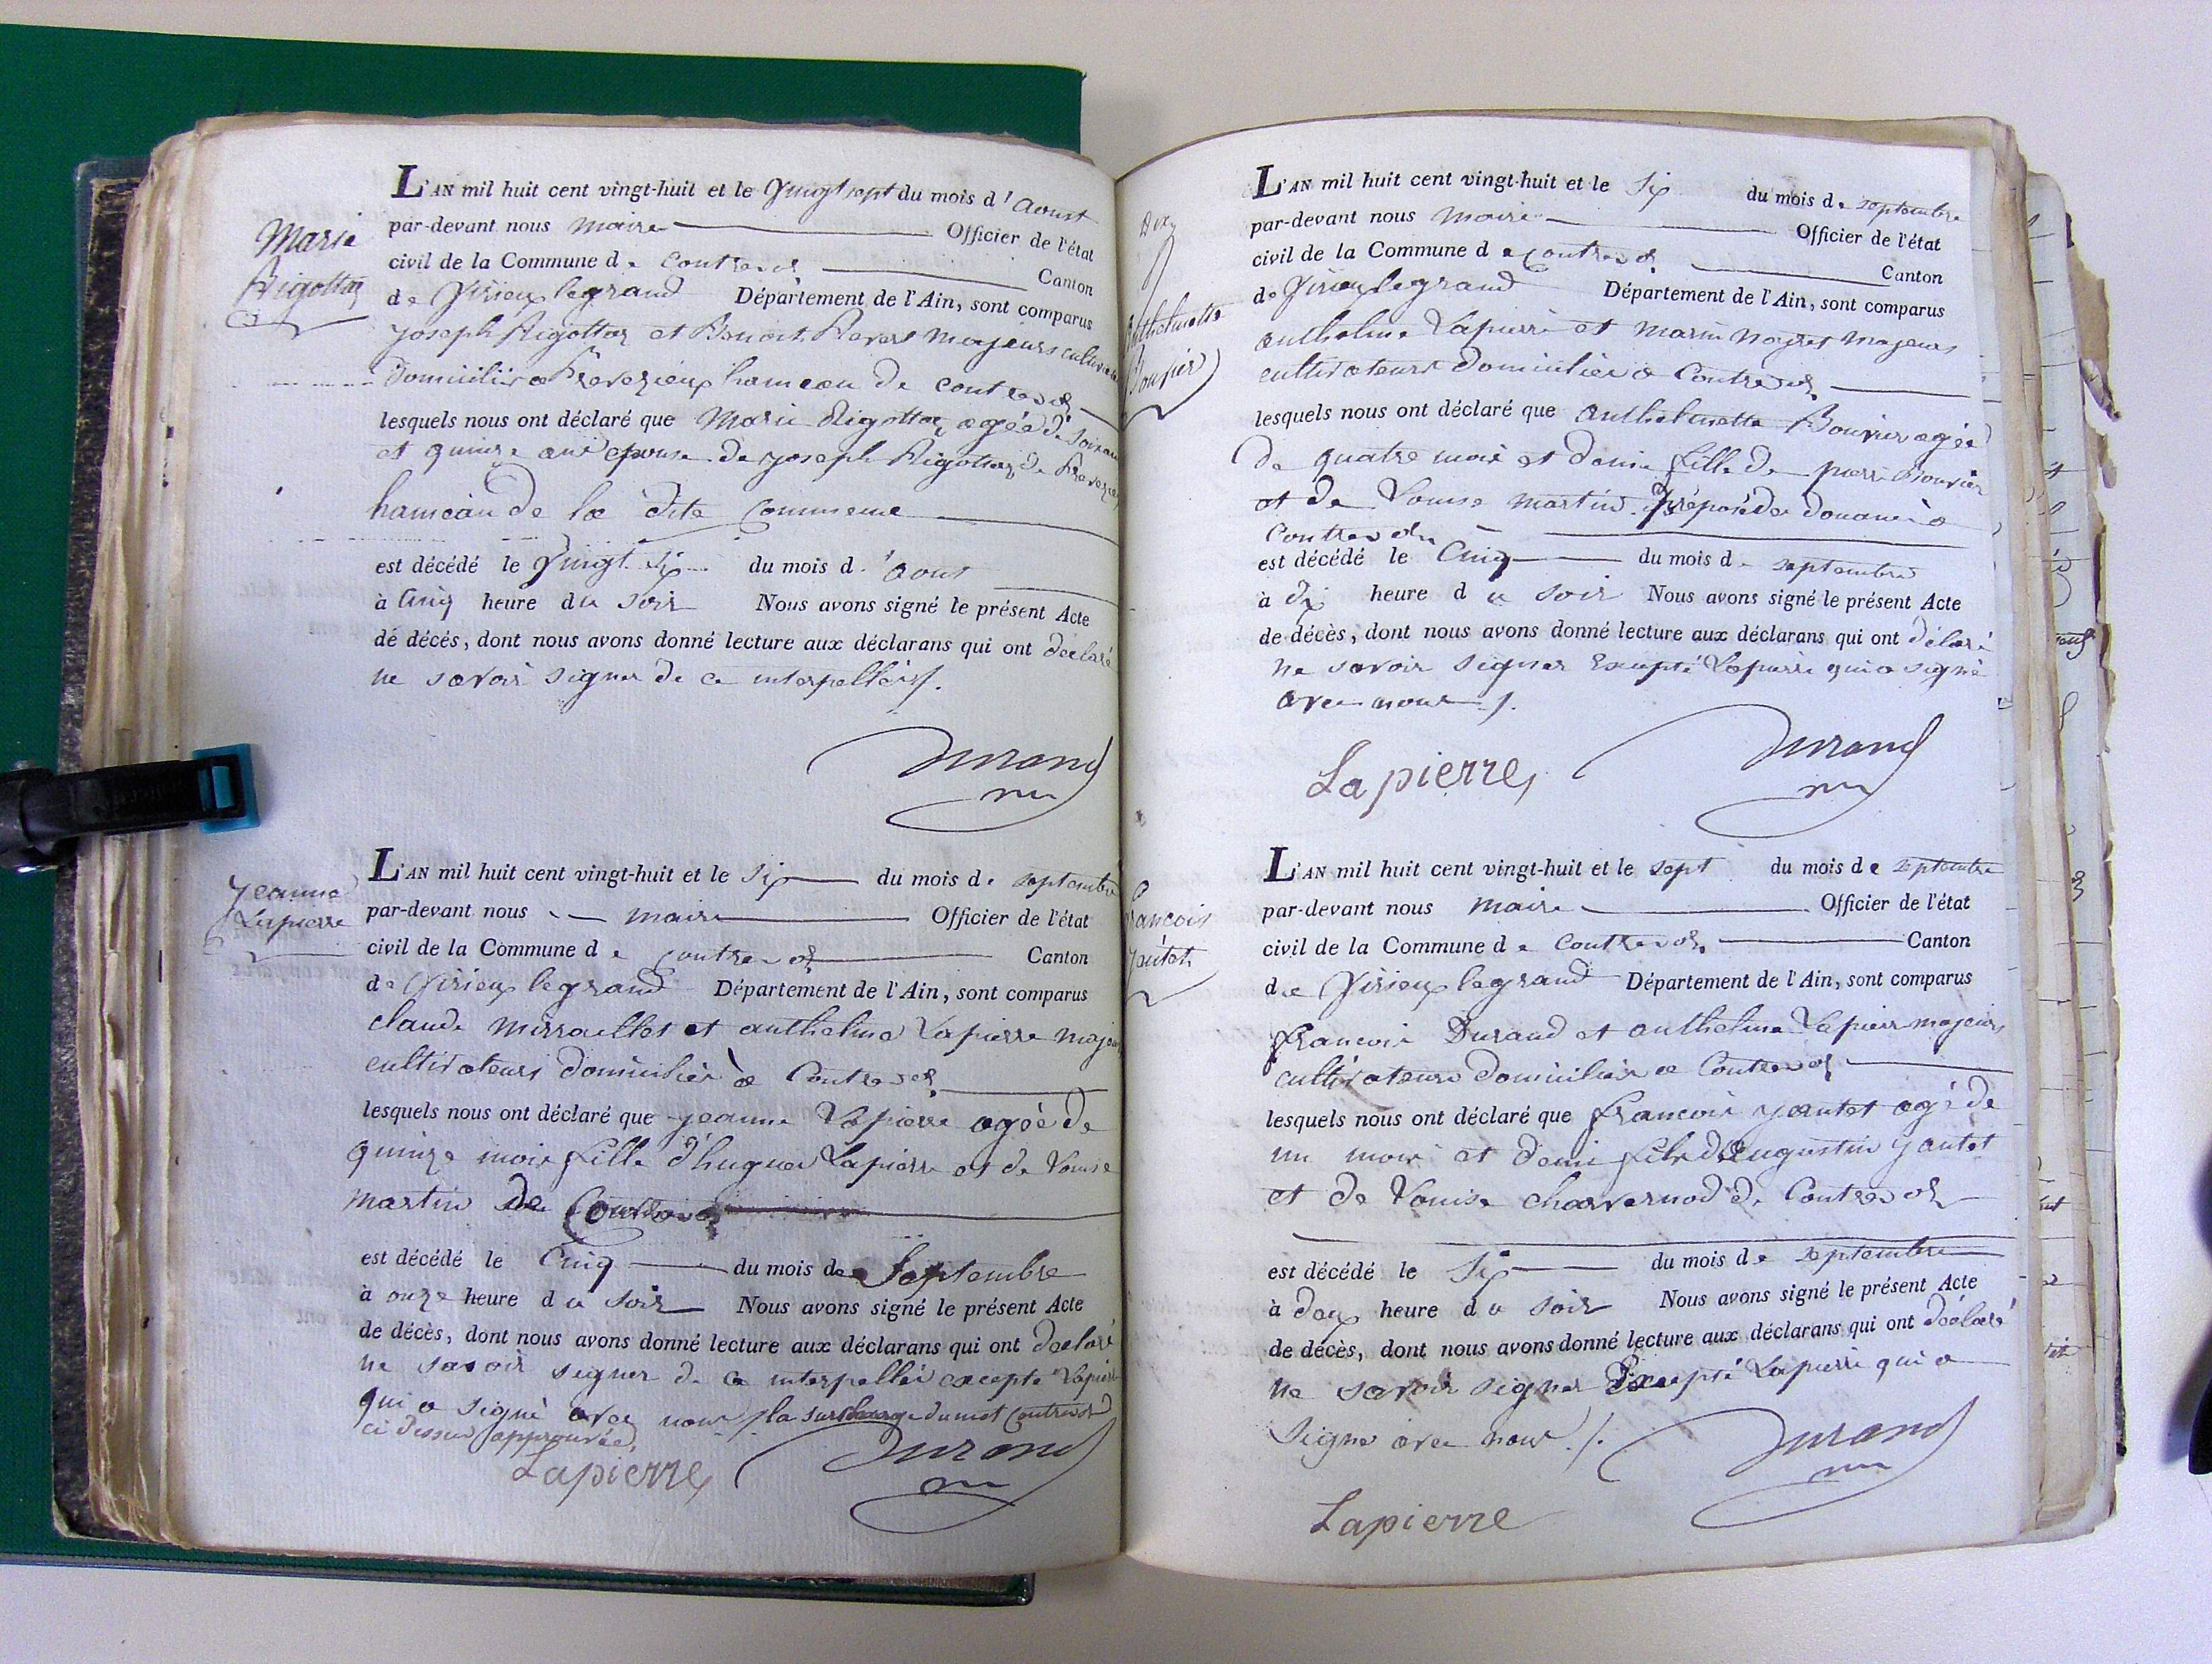 Marie
Rigottaz
L'AN mil huit cent vingt-huit et le Vingt sept du mois d'Aoust
par-devant nous maire Officier de l'état
civil de la Commune de Contrevoz Canton
de Virieu legrand Département de l'Ain, sont comparus
Joseph Rigottaz et Benoit Revert majeurs
domiciliés a hameau de contrevoz
lesquels nous ont déclaré que Marie Rigottaz agée de
et quinze ans épouse de joseph Rigottaz de
hameau de la dite Commune
est décédé le Vingt Six du mois d'aout
à Cinq heure du soir Nous avons signé le présent Acte
de décès, dont nous avons donné lecture aux déclarans qui ont déclaré
ne savoir signer de ce interpellés ./.
Durand
Jeanne
Lapierre
L'AN mil huit cent vingt-huit et le Six du mois de septembre
par-devant nous maire Officier de l'état
civil de la Commune de contrevoz Canton
de Virieu legrand Département de l'Ain, sont comparus
claude et anthelme Lapierre
cultivateurs domiciliés a Contrevoz
lesquels nous ont déclaré que jeanne Lapierre agée de
quinze mois fille d'hugues Lapierre et de Louise
martin de Contrevoz
est décédé le Cinq du mois de Septembre
à onze heure du soir Nous avons signé le présent Acte
de décès, dont nous avons donné lecture aux déclarans qui ont déclaré
ne savoir signer de ce interpellés excepté Lapierre
qui a signé avec nous ./. la surcharge du mot Contrevoz
ci dessus approuvée.
Lapierre Durand
Anthelmette
Bouvier
L'AN mil huit cent vingt-huit et le Six du mois de septembre
par-devant nous maire Officier de l'état
civil de la Commune de contrevoz Canton
de Virieu legrand Département de l'Ain, sont comparus
anthelme Lapierre et marin majeurs
cultivateurs domiciliés a Contrevoz
lesquels nous ont déclaré que anthelmette Bouvier agée
de quatre mois et demi fille de pierre Bouvier
et de Louise martin. préposé des douanes a
Contrevoz
est décédé le Cinq du mois de septembre
à dix heure du soir Nous avons signé le présent Acte
de décès, dont nous avons donné lecture aux déclarans qui ont déclaré
ne savoir signer Excepté Lapierre qui a signé
avec nous ./.
Lapierre Durand
francois
yautet
L'AN mil huit cent vingt-huit et le sept du mois de septembre
par-devant nous maire Officier de l'état
civil de la Commune de Contrevoz Canton
de Virieu legrand Département de l'Ain, sont comparus
francois Durand et anthelme Lapierre majeurs
cultivateurs domiciliés a Contrevoz
lesquels nous ont déclaré que francois yautet agé de
un mois et demi fils d'Augustin yautet
et de Louise charvernod de Contrevoz
est décédé le Six du mois de septembre
à deux heure du soir Nous avons signé le présent Acte
de décès, dont nous avons donné lecture aux déclarans qui ont déclaré
ne savoir signer Excepté Lapierre qui a
Signé avec nous ./.
Durand
Lapierre